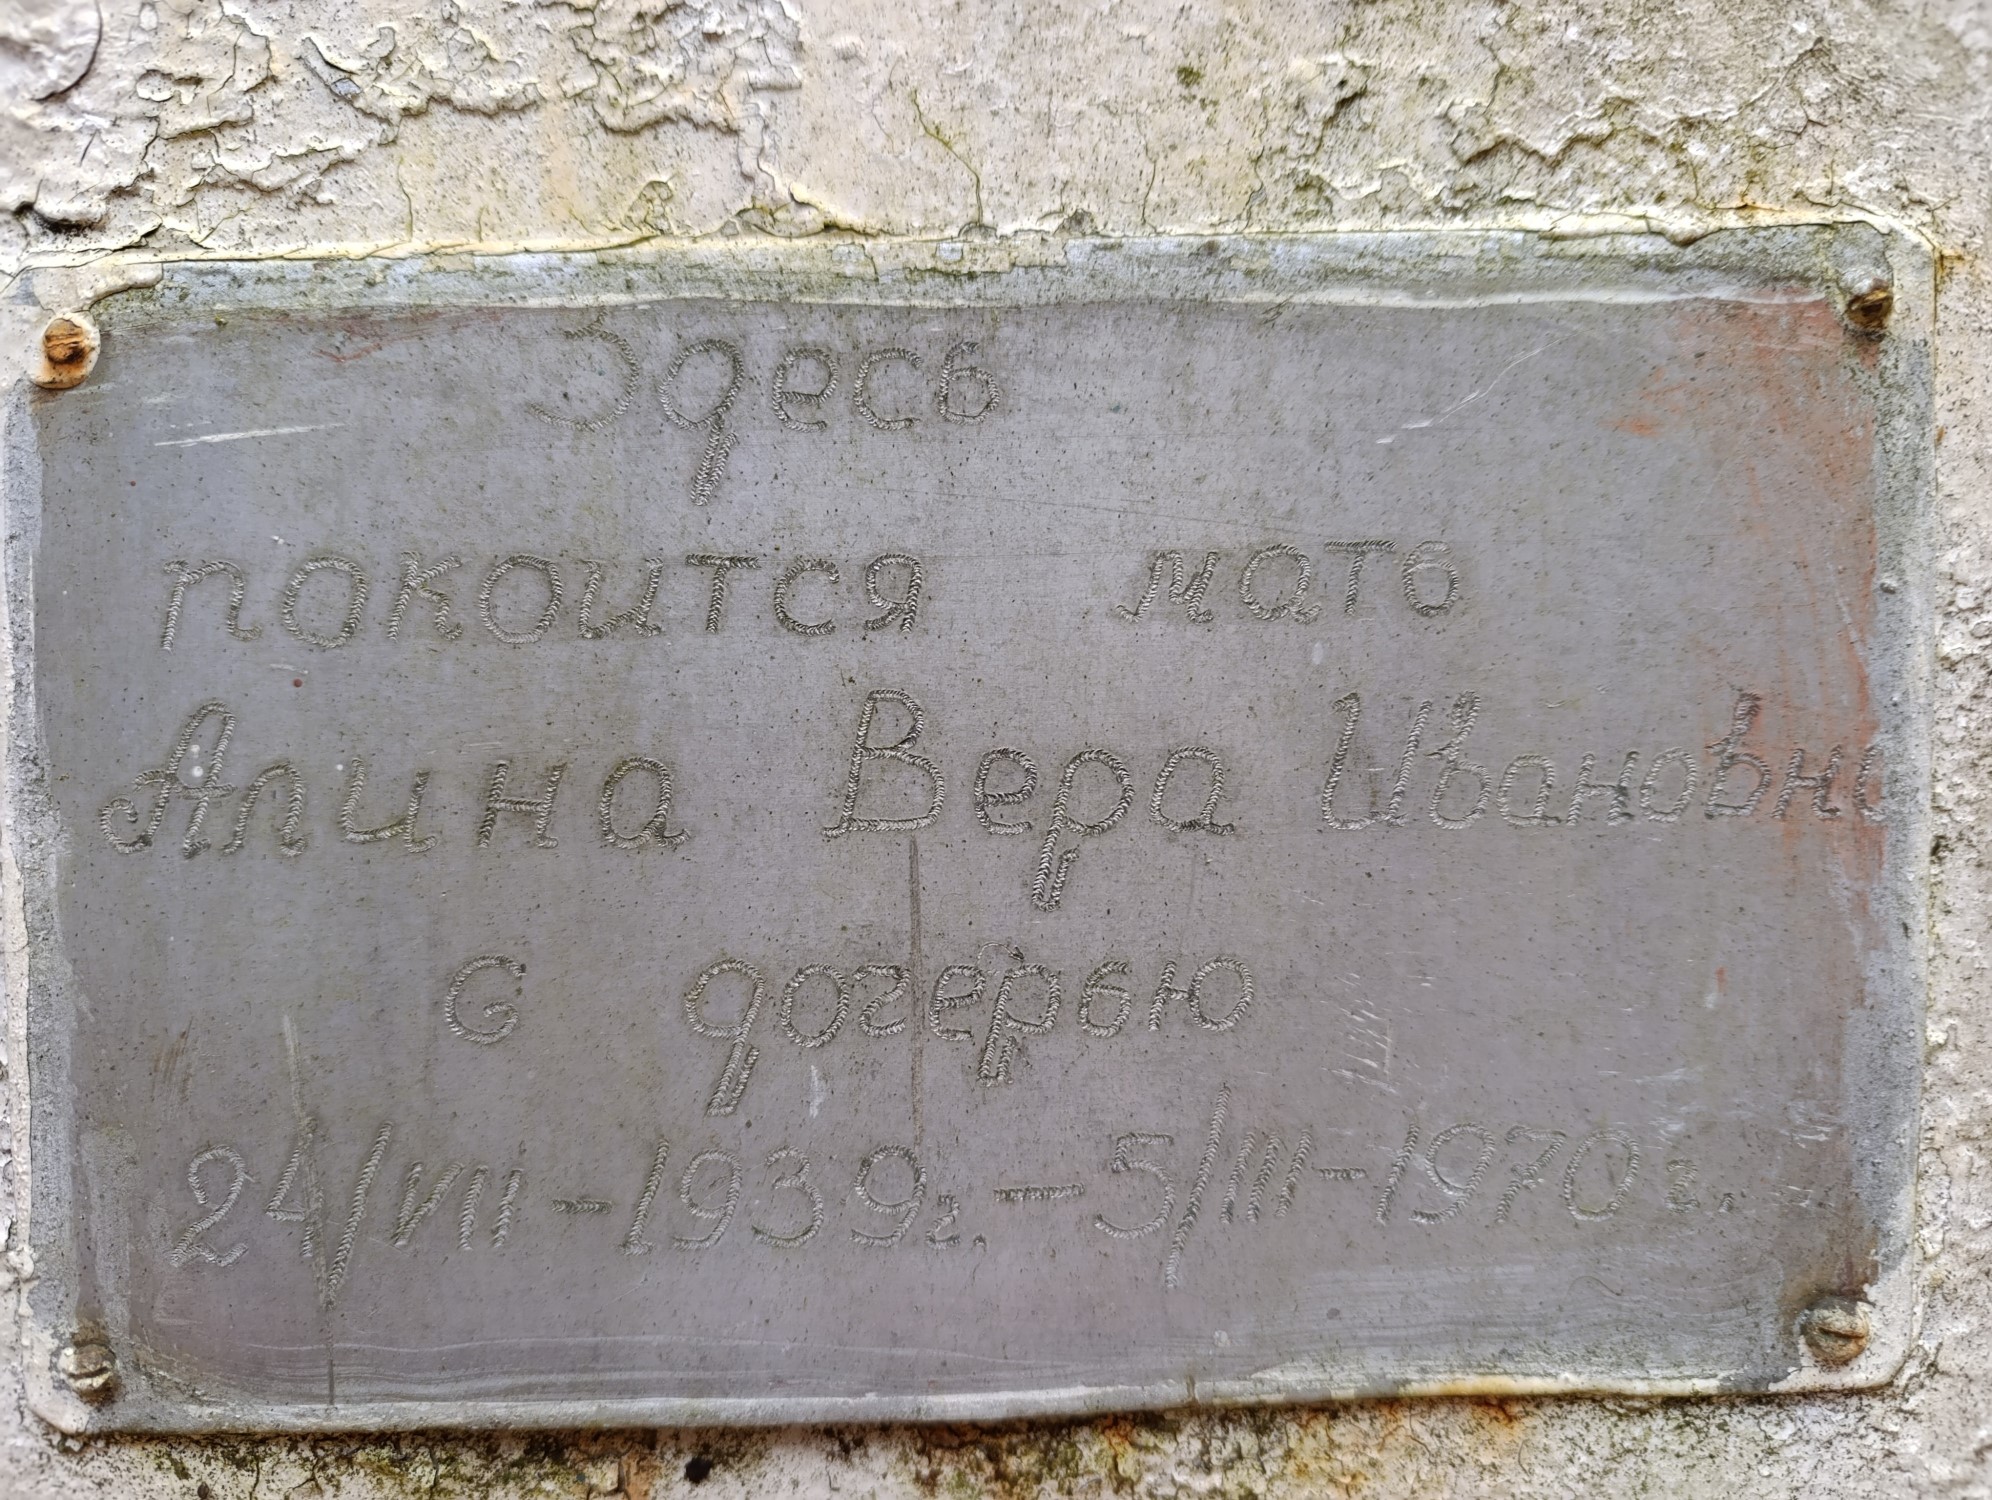 Здесь
покоится мать
Алина Вера Ивановна
с дочерью
24/VII-1939г. - 5/III-1970г.